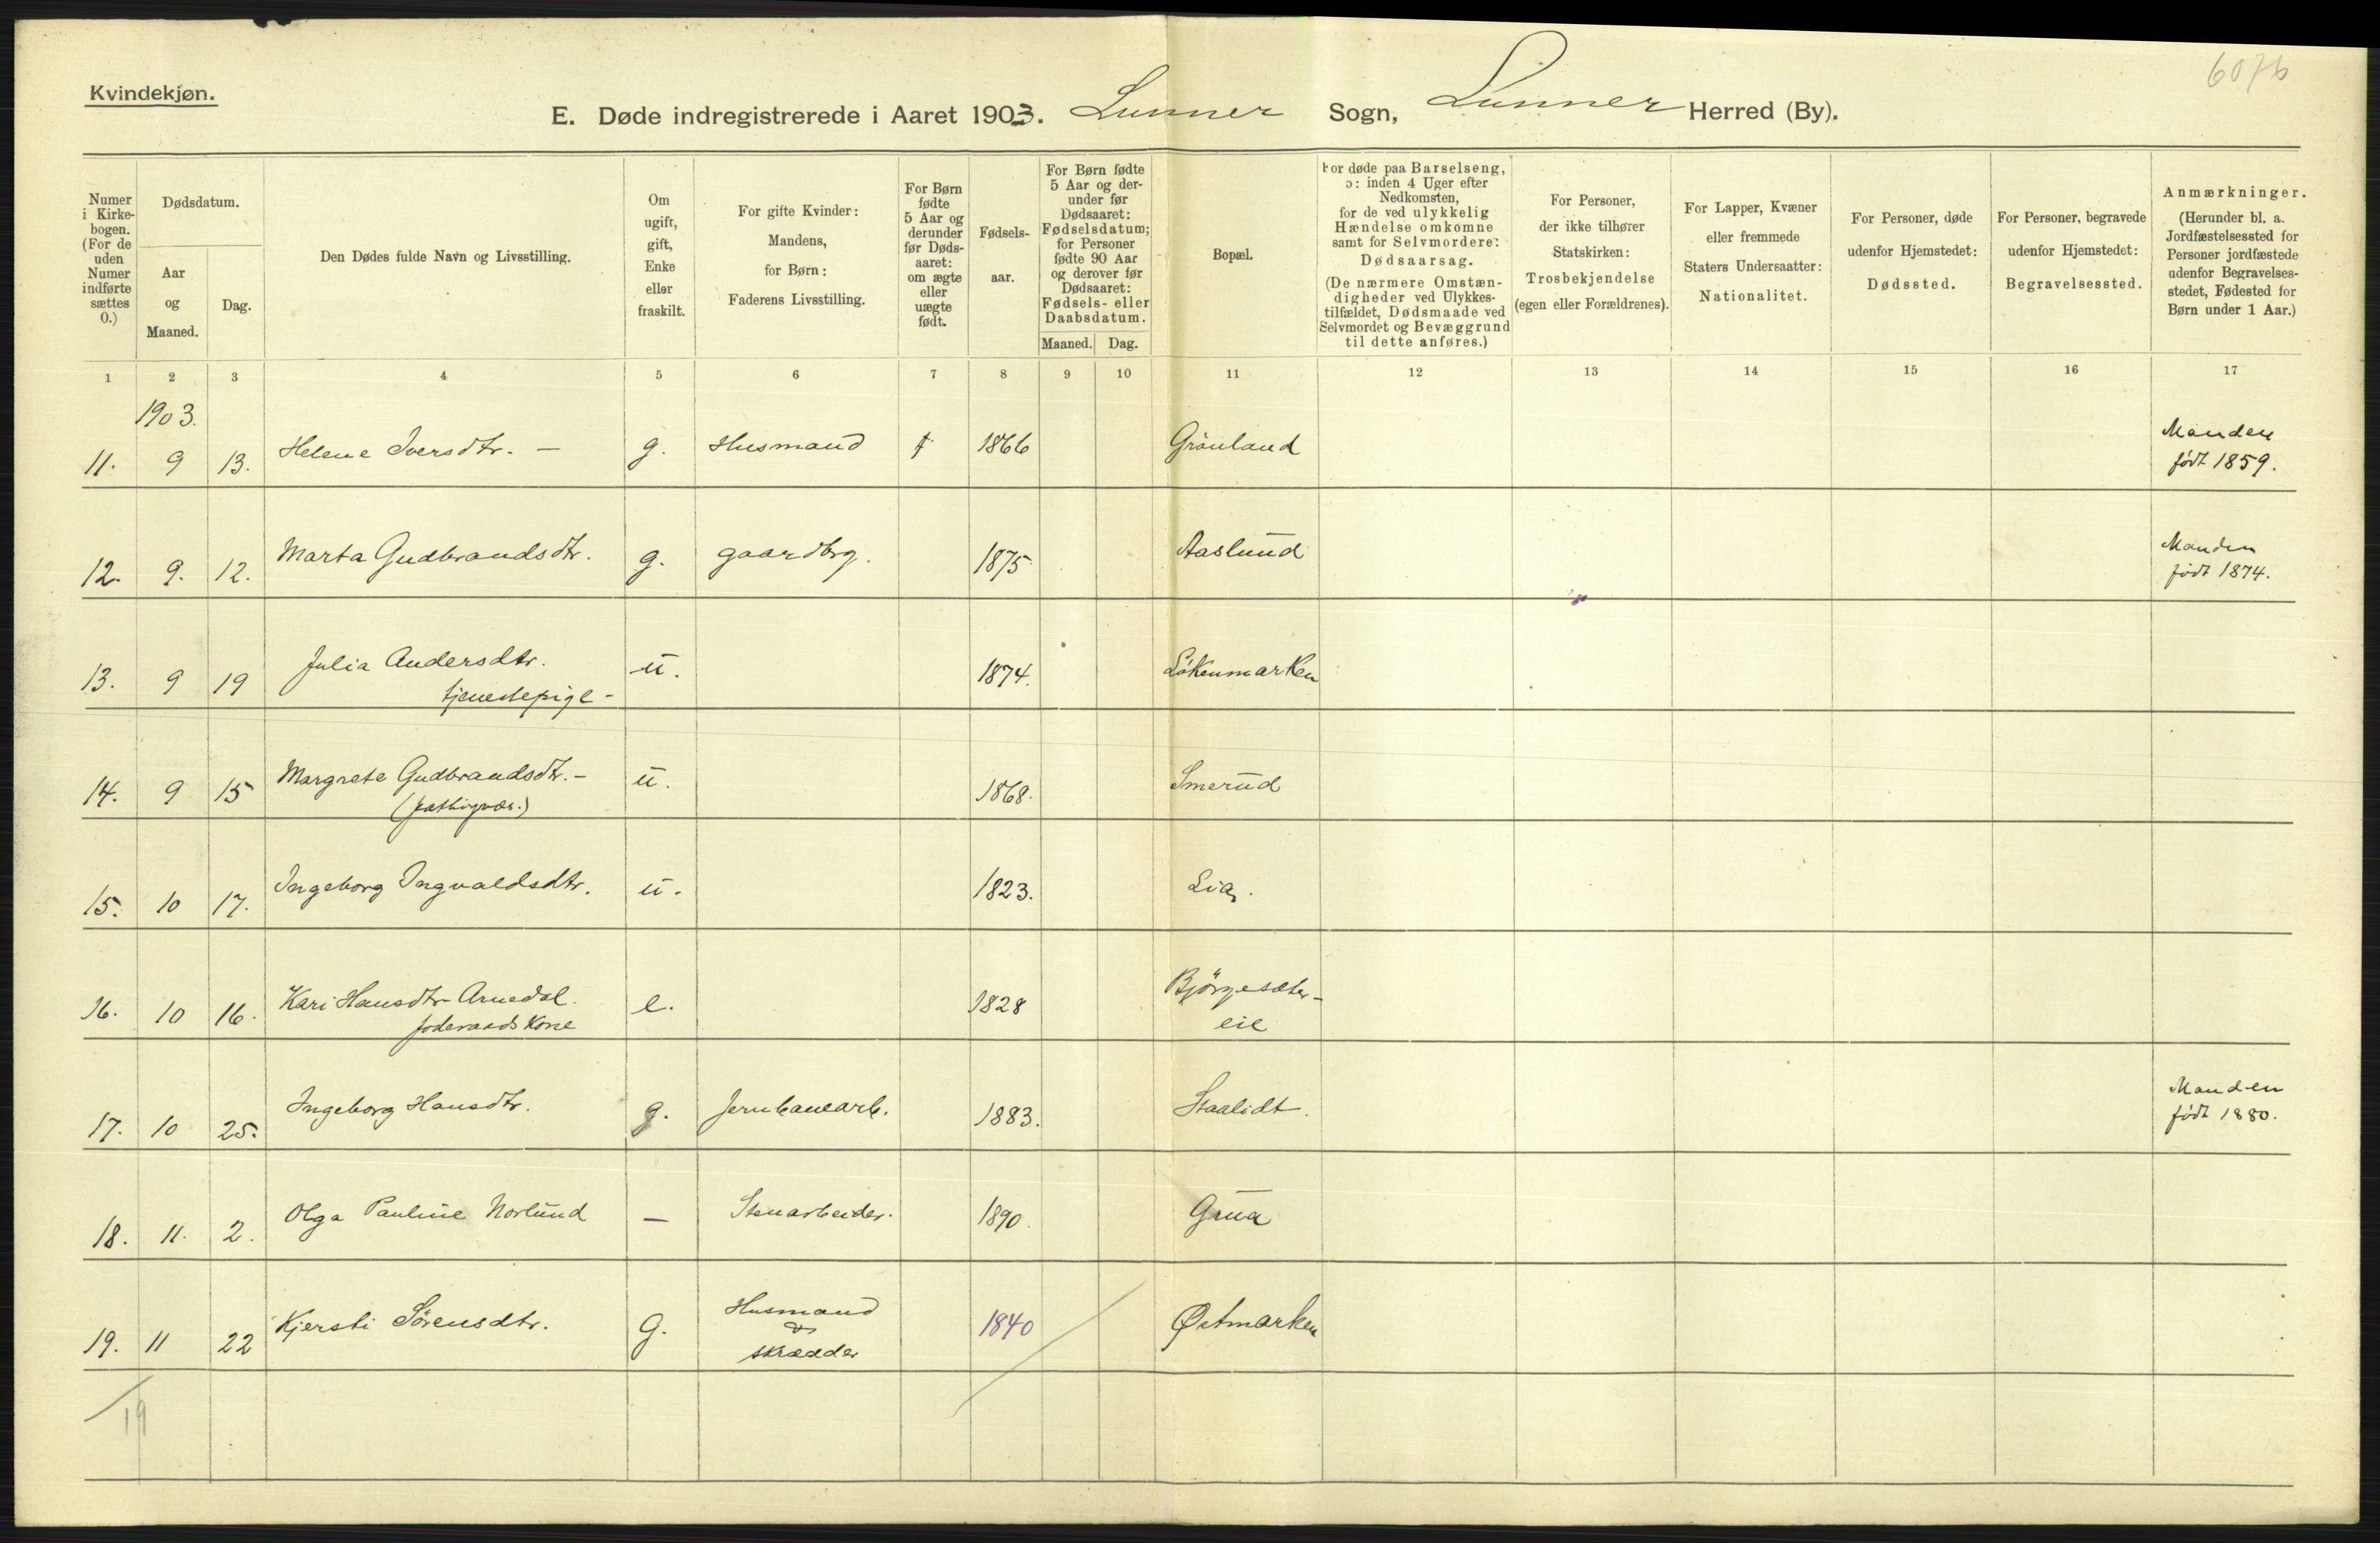 6076
Kvindekjøn.
E. Døde indregistrerede i Aaret 1903. Lunner Sogn, Lunner Herred (By).
Numer i Kirkebogen. (For de uden Numer indførte sættes 0.)
Dødsdatum.
Aar og Maaned.
Dag.
Den Dødes fulde Navn og Livsstilling.
Om ugift, gift, Enke eller fraskilt.
For gifte Kvinder: Mandens, for Børn: Faderens Livsstilling.
For Børn fødte 5 Aar og derunder før Dødsaaret: om ægte eller uægte født.
Fødselsaar.
For Børn fødte 5 Aar og derunder før Dødsaaret: Fødselsdatum; for Personer fødte 90 Aar og derover før Dødsaaret: Fødsels- eller Daabsdatum.
Maaned. Dag.
Bopæl.
For døde paa Barselseng, ɔ: inden 4 Uger efter Nedkomsten, for de ved ulykkelig Hændelse omkomne samt for Selvmordere: Dødsaarsag. (De nærmere Omstændigheder ved Ulykkestilfældet, Dødsmaade ved Selvmordet og Bevæggrund til dette anføres.)
For Personer, der ikke tilhører Statskirken: Trosbekjendelse (egen eller Forældrenes).
For Lapper, Kvæner eller fremmede Staters Undersaatter: Nationalitet.
For Personer, døde udenfor Hjemstedet: Dødssted.
For Personer, begravede udenfor Hjemstedet: Begravelsessted.
Anmærkninger. (Herunder bl. a. Jordfæstelsessted for Personer jordfæstede udenfor Begravelsesstedet, Fødested for Børn under 1 Aar.)
1 2 3 4 5 6 7 8 9 10 11 12 13 14 15 16 17
1903.
11. 9 13. Helene Iversdtr. — g. Husmand 1866 Grönland Manden født 1859.
12. 9. 12. Marta Gudbrandsdtr. g. gaardbrg. 1875 Aaslund Manden født 1874.
13. 9 19 Julia Andersdtr. ü. 1874. Lökenmarken
tjenestepige -
14. 9 15 Margrete Gudbrandsdtr. - ü. 1868. Smerud
15. 10 17. Ingeborg Ingvaldsdtr. ü. 1823. Lia.
16. 10 16. Kari Hansdtr Arnedal. e. 1828 Bjørgesæter-
foderaadskone eie
17. 10 25. Ingeborg Hansdtr. g. Jernbanearb. 1883. Staalidt. Manden født 1880.
18. 11. 2. Olga Pauline Norlund — Stenarbeider. 1890. Grua
19. 11 22 Kjersti Sörensdtr. g. Husmand & skrædder 1840 Østmarken
19